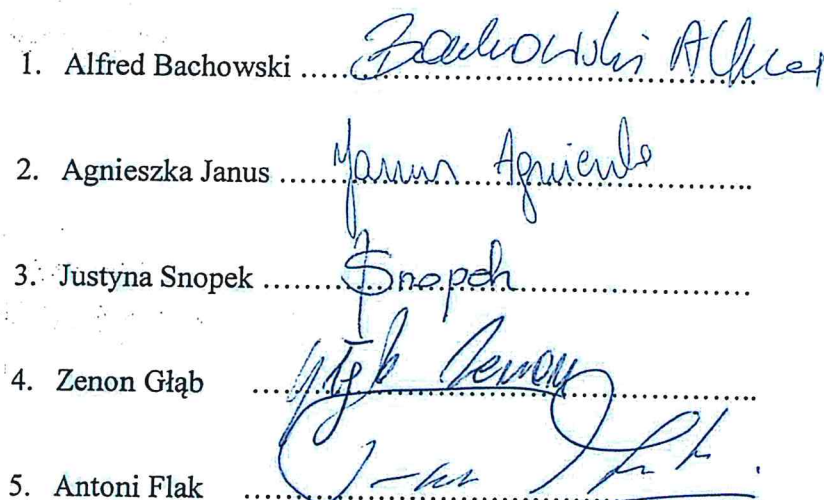 1. Alfred Bachowski ........ Bachowski Alfred
2. Agnieszka Janus ........ Janus Agnieszka
3. Justyna Snopek ........ JSnopek
4. Zenon Głąb ........ Głąb Zenon
5. Antoni Flak ........